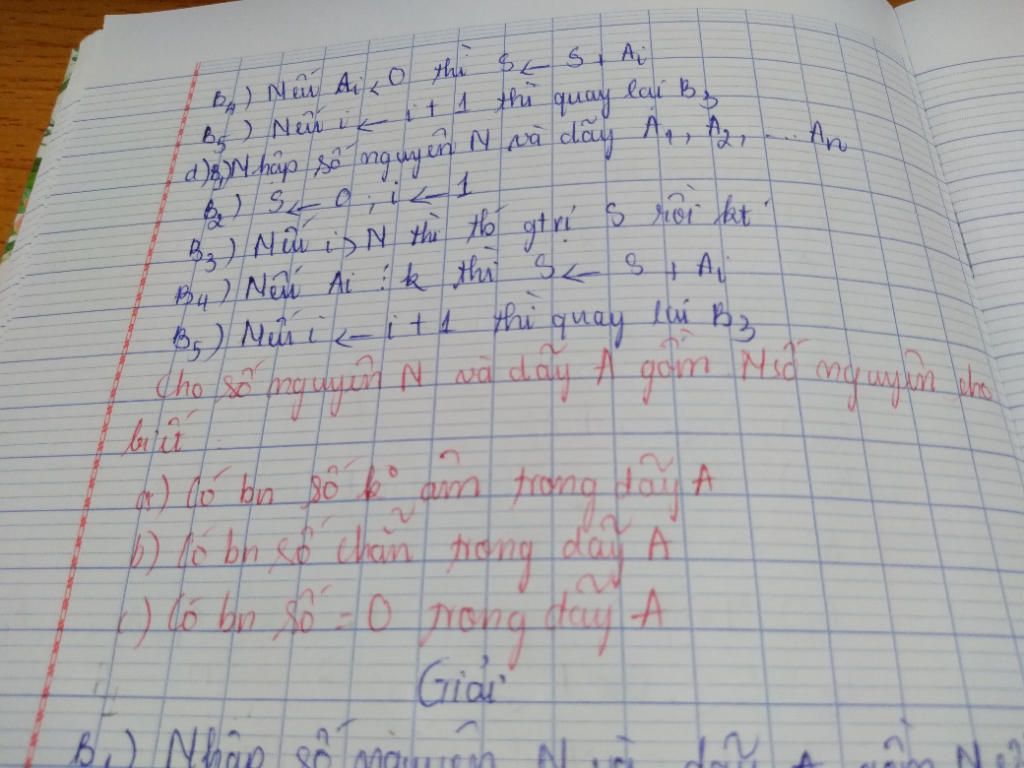 B4) Nếu Ai < 0 thì S ← S + Ai
B5) Nếu i ← i + 1 thì quay lại B3
d) B1) Nhập số nguyên N và dãy A1, A2, ... An
B2) S ← 0, i ← 1
B3) Nếu i > N thì tb gtrị S rồi kt
B4) Nếu Ai ⋮ k thì S ← S + Ai
B5) Nếu i ← i + 1 thì quay lại B3
Cho số nguyên N và dãy A gồm N số nguyên cho
biết
a) Có bn số k° âm trong dãy A
b) Có bn số chẵn trong dãy A
c) Có bn số = 0 trong dãy A
Giải
B1) Nhập số nguyên N và dãy A gồm N số